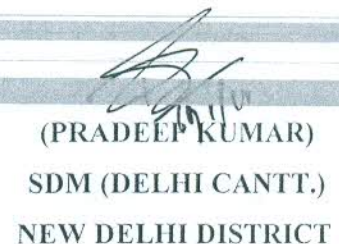 (PRADEEP KUMAR)
SDM (DELHI CANTT.)
NEW DELHI DISTRICT